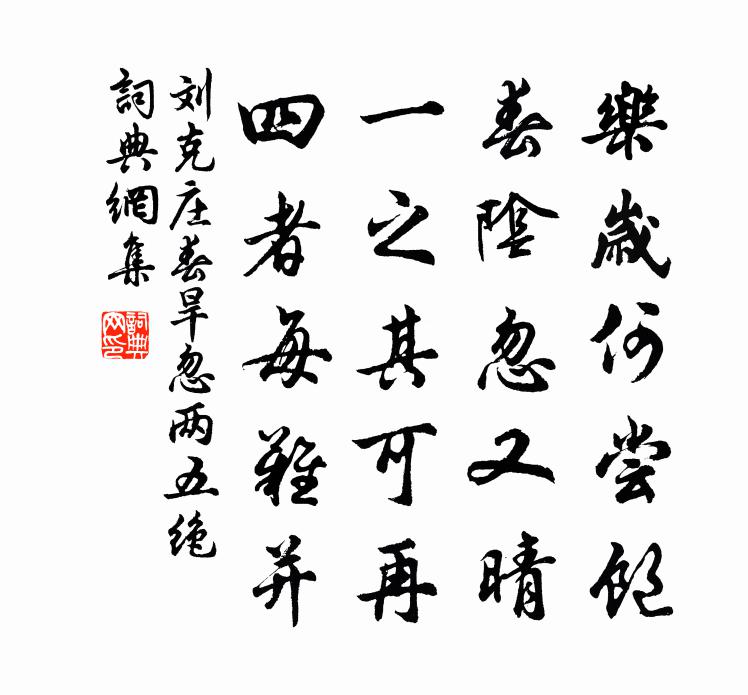 樂歲何嘗飽
春陰忽又晴
一之其可再
四者每難并
刘克庄春旱忽两五绝
詞典網集
詞典網印